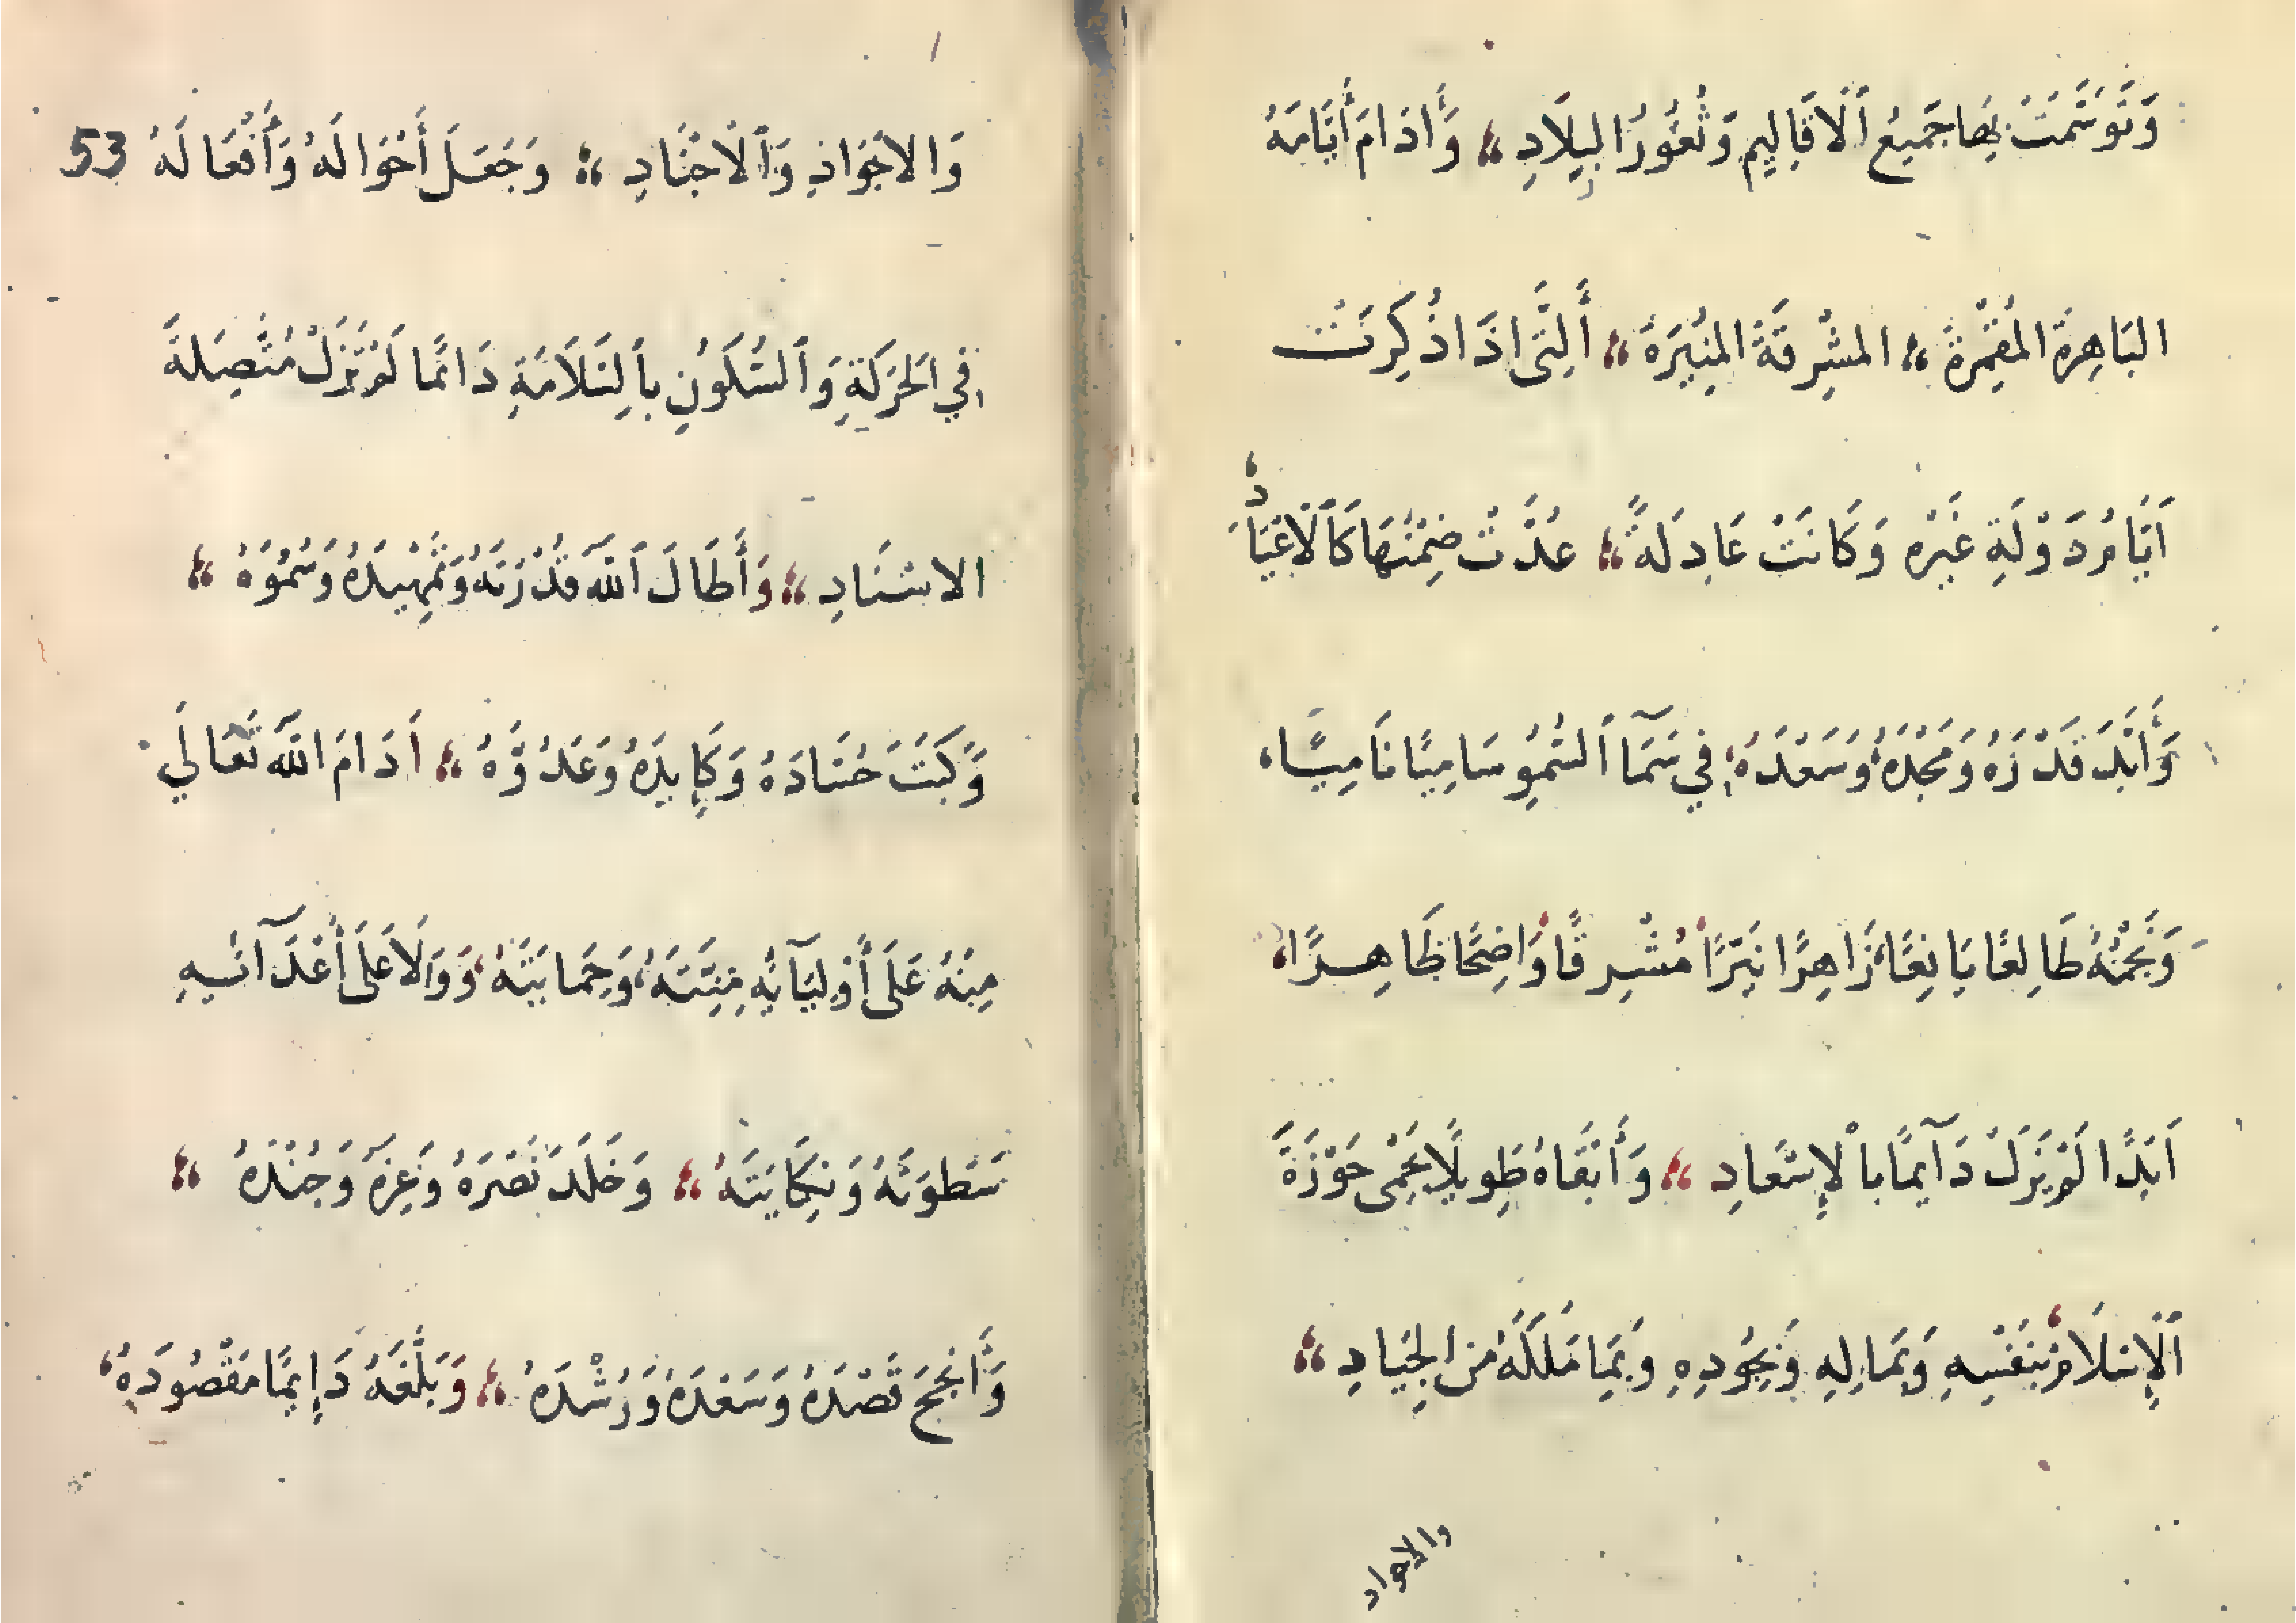 وَتَوَسَّمَتْ بِهَا جَمِيعُ ٱلَاقَالِيمِ وَثُغُورُ البِلَادِ ؛ وَأَدَامَ أَيَّامَهُ
البَاهِرَةَ المُقْمِرَةَ ؛ المشْرِقَةَ المنِيرَةَ ؛ أَلَّتِى اذَا ذُكِرَتْ
اَيَّامُ دَوْلَةِ غَيْرِه وَكَانَتْ عَادِلَةً ؛ عُدَّتْ ضِمْنَهَا كَٱلَاعْيَادِ
وَأَبَّدَ قَدْرَهُ وَمَجْدَهُ، وَسَعْدَهُ، فِي سَمَآ ٱلسُّمُوِ سَامِيًا نَامِيًا،
وَنَجْمَهُ طَالِعًا يَانِعًا، زَاهِرًا نَيِّرًا، مُشْرِقًا، وَاضِحًا ظَاهِرًا،
اَبَدًا لَمْ يَزَلْ دَآيمًا باْلإِسْعَادِ ؛ وَأَبْقَاهُ طَوِيلًا يَحْمِى حَوْزَةَ
ٱلْإِسْلَامِ، بِنَفْسِهِ وَبِمَالِهِ وَبِجُودِهِ وَبِمَا مَلَكَهُ مِنَ الجِيَادِ ؛
والاجواد
وَالاجْوَادِ وَٱلَاجْنَادِ ؛ وَجَعَلَ أَحْوَالَهُ وَأَفْعَالَهُ 53
فِي الحَرَكَةِ وَٱلسُّكُونِ بِٱلسَّلَامَةِ دَائمًا لَمْ تَزَلْ مُتَّصِلَةَ
الاسْنَادِ ؛ وَأَطَالَ ٱللَّه قُدْرَتَهُ وَتَمْهِيدَهُ وَسُمُوَهُ ؛
وَكَبَتَ حُسَّادَهُ وَكَايِدَهُ وَعَدُوَّهُ ؛ أَدَامَ اللَّه تَعَالَي
مِنْهُ عَلَى أَوْلِيَآيِهِ مِنَّتَهُ، وَحِمَايَتَهُ، وَوَالَا عَلَى أَعْدَآئِهِ
سَطوَتَهُ وَنِكَايَتَهُ ؛ وَخَلَّدَ نَصْرَهُ وَعِزَهَ وَجُنْدَهُ ؛
وَأَنْجَحَ قَصْدَهُ وَسَعْدَهُ وَرُشْدَهُ ؛ وَبَلَّغَهُ دَايِمًا مَقْصُودَهُ،